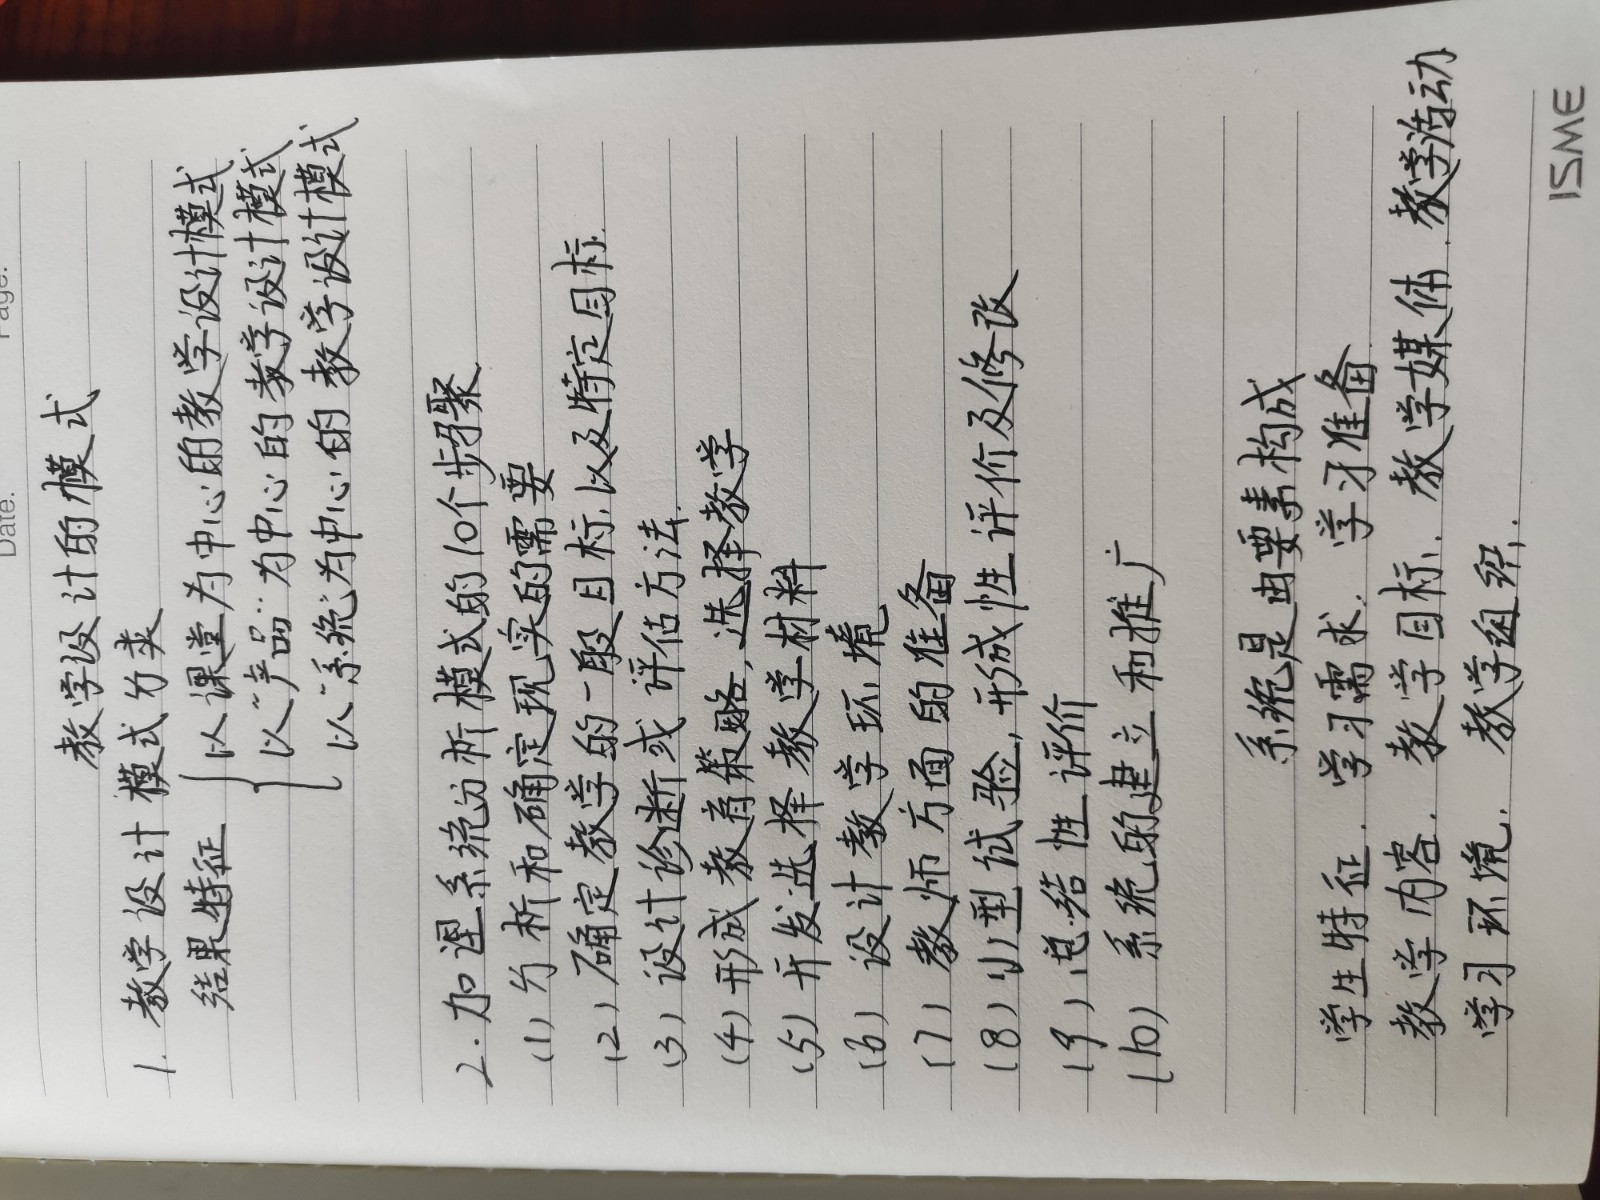 Date.
Page.
教学设计的模式
1. 教学设计模式分类
结果特征 { 以课堂为中心的教学设计模式
以“产品”为中心的教学设计模式
以“系统”为中心的教学设计模式
2. 加涅系统分析模式的10个步骤
(1) 分析和确定现实的需要
(2) 确定教学的一般目标以及特定目标
(3) 设计诊断或评估方法
(4) 形成教育策略，选择教学
(5) 开发选择教学材料
(6) 设计教学环境
(7) 教师方面的准备
(8) 小型试验，形成性评价及修改
(9) 总结性评价
(10) 系统的建立和推广
系统是由要素构成
学生特征. 学习需求. 学习准备
教学内容. 教学目标. 教学媒体. 教学活动
学习环境. 教学组织.
ISME